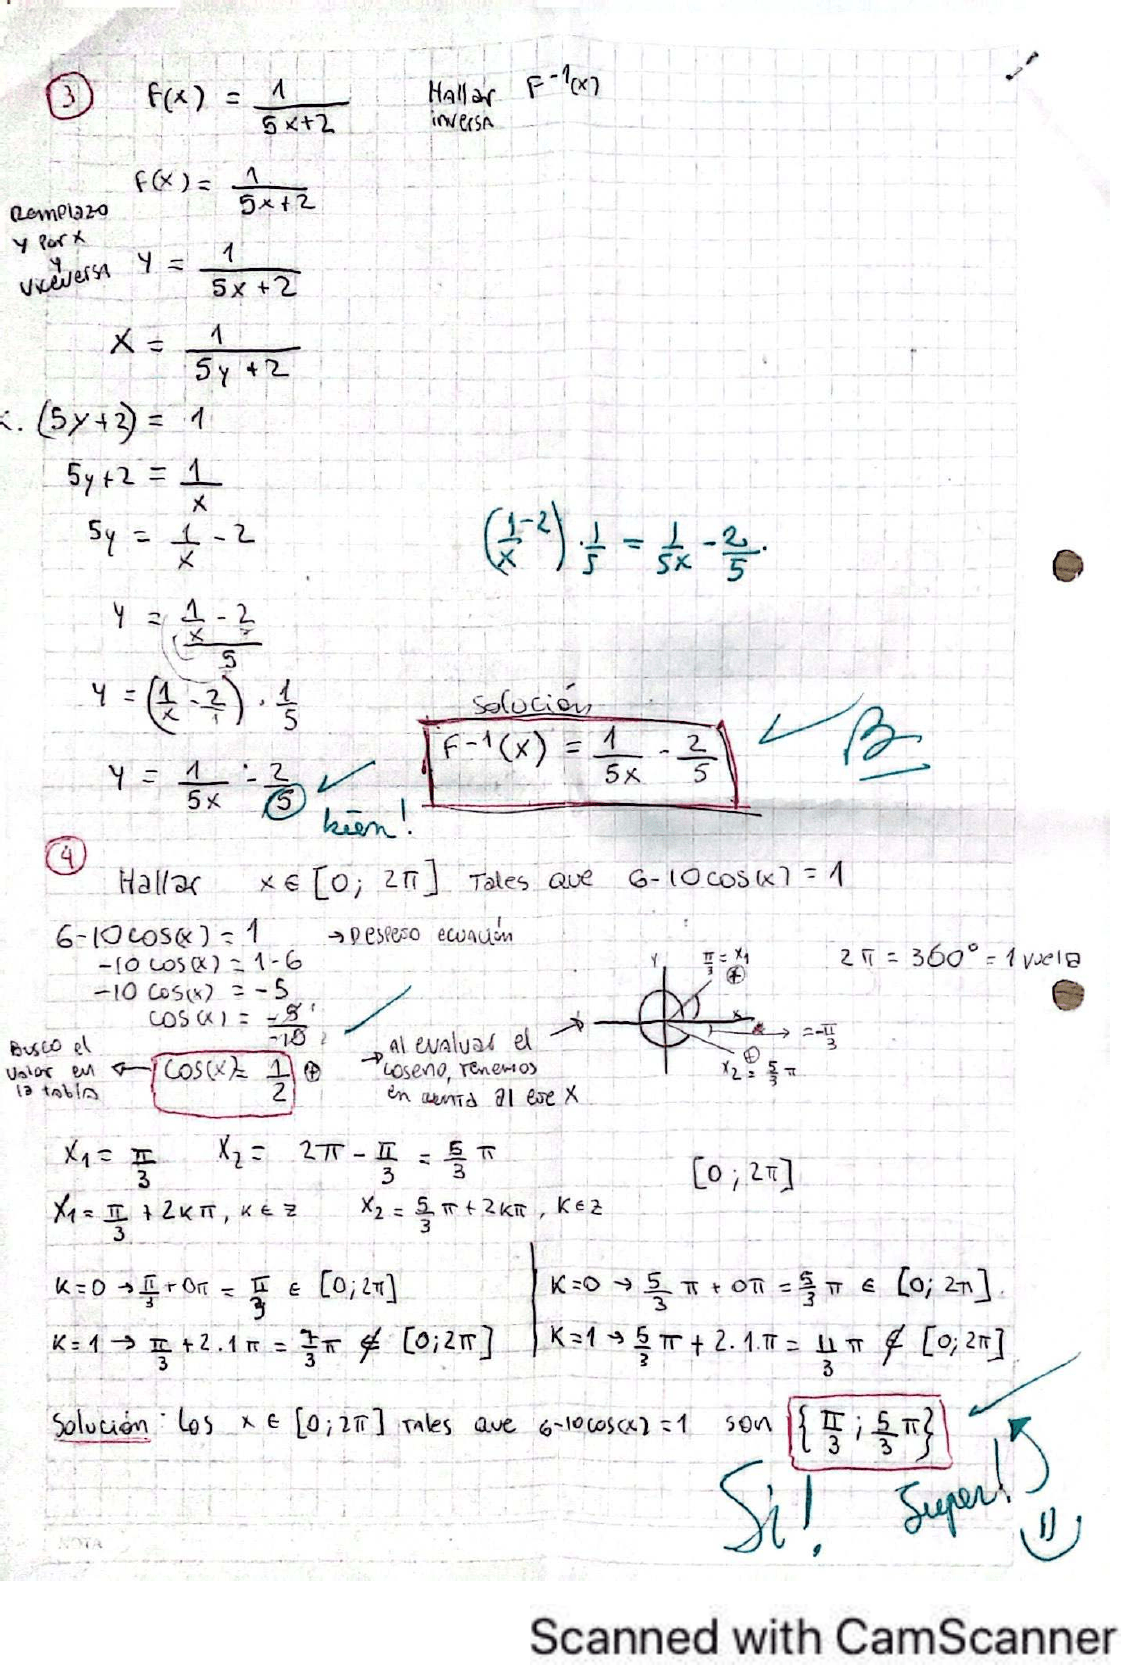 3 F(x) = 1/(5x+2) Hallar inversa F⁻¹(x)
F(x) = 1/(5x+2)
Remplazo y por x y viceversa
y = 1/(5x+2)
x = 1/(5y+2)
x. (5y+2) = 1
5y+2 = 1/x
5y = 1/x - 2
(1/x -2) . 1/5 = 1/5x - 2/5.
y = (1/x - 2)/5
y = (1/x - 2/1) . 1/5
y = 1/5x - 2/5
bien!
Solución
F⁻¹(x) = 1/5x - 2/5
B
4
Hallar x ∈ [0; 2π] Tales que 6-10cos(x) = 1
6-10cos(x) = 1 → Despejo ecuación
-10 cos(x) = 1-6
-10 cos(x) = -5
cos(x) = -5/-10
Busco el valor en la tabla ← cos(x) = 1/2 ⊕
→ Al evaluar el coseno, tenemos en cuenta al eje x →
y π/3 = x₁ ⊕
x → = -π/3
⊕ x₂ = 5/3 π
2π = 360° = 1 vuelta
x₁ = π/3 x₂ = 2π - π/3 = 5/3 π
[0; 2π]
x₁ = π/3 + 2kπ, k ∈ z x₂ = 5/3 π + 2kπ, k ∈ z
k=0 → π/3 + 0π = π/3 ∈ [0; 2π]
k=1 → π/3 + 2.1π = 7/3 π ∉ [0; 2π]
k=0 → 5/3 π + 0π = 5/3 π ∈ [0; 2π].
k=1 → 5/3 π + 2.1.π = 11/3 π ∉ [0; 2π]
Solución: Los x ∈ [0; 2π] Tales que 6-10cos(x) = 1 son {π/3 ; 5/3 π}
Si! Super!
NOTA
Scanned with CamScanner